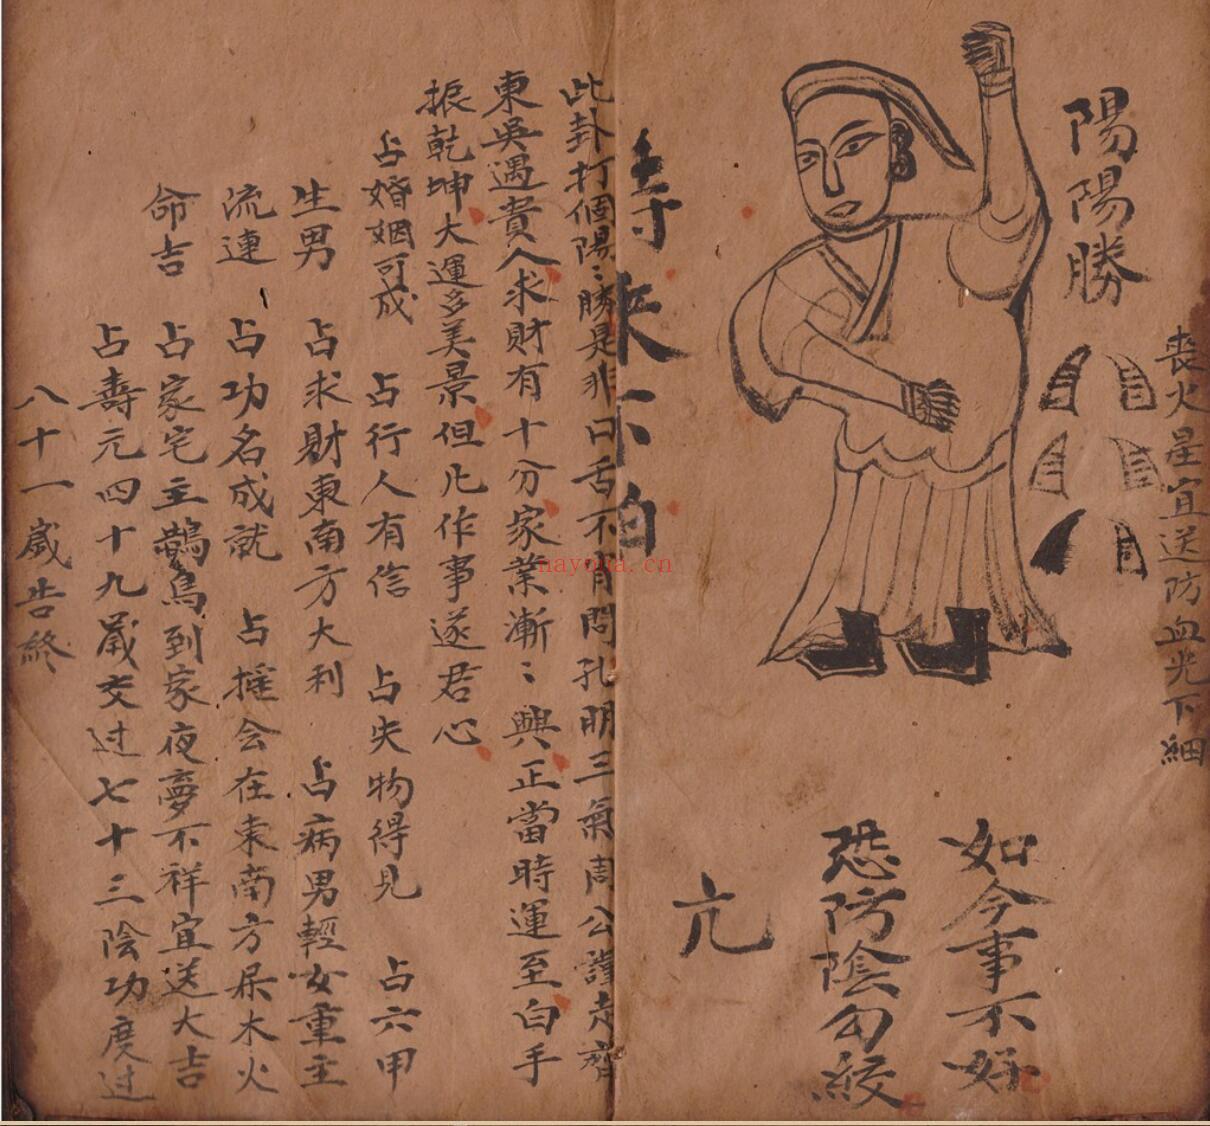 喪火星宜送防血光下細
陽陽勝
如今事不好
恐防陰勾絞
亢
來不怕
此卦打個陽〻勝是非口舌不肯問孔明三氣周公謹走齊
東吳遇貴人求財有十分家業漸〻興正當時運至白手
振乾坤大運多美景但凡作事遂君心
占婚姻可成 占行人有信 占失物得見 占六甲
生男 占求財東南方大利 占病男輕女重主
流連 占功名成就 占摇会在東南方屬木火
命吉 占家宅主鵲鳥到家夜夢不祥宜送大吉
占壽元四十九嵗交过七十三陰功度过
八十一嵗告終
nayona.cn